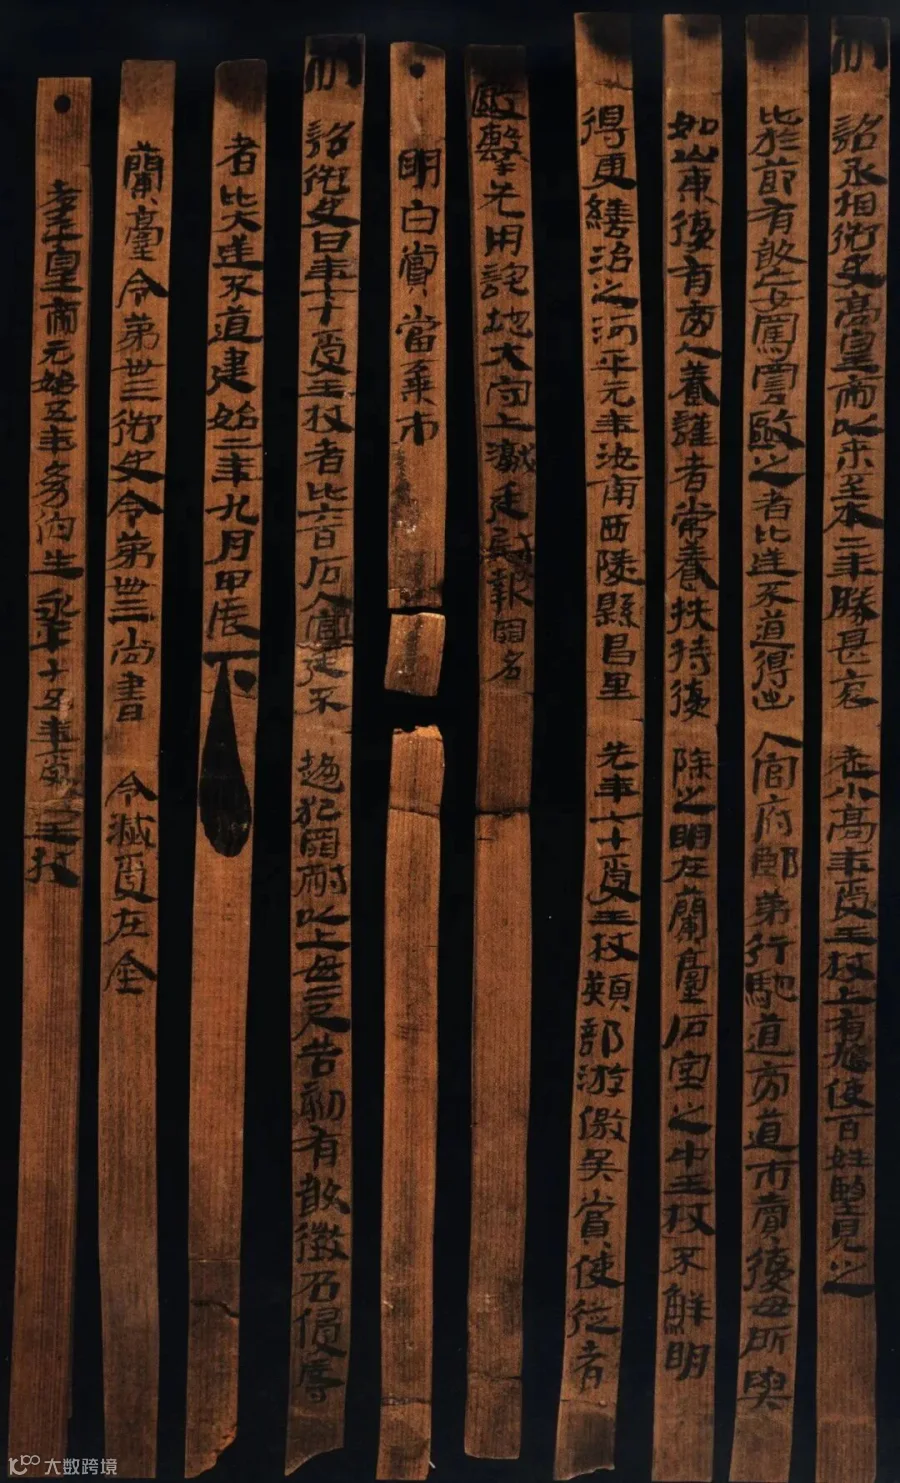 制詔丞相御史高皇帝以來至本二年勝甚哀老小高年受王杖上有鳩使百姓望見之
比於節有敢妄罵詈毆之者比逆不道得出入官府郎第行馳道旁道市賣復毋所與
如山東復有旁人養謹者常養扶持復除之明在蘭臺石室之中王杖不鮮明
得更繕治之河平元年汝南西陵縣昌里先年七十受王杖類部游徼吳賞使從者
毆擊先用詫地大守上讞廷尉報罪名
明白賞當棄市
制詔御史曰年七十受王杖者比六百石入官廷不趨犯罪耐以上毋二尺告劾有敢徵召侵辱
者比大逆不道建始二年九月甲辰下
蘭臺令第卅三御史令第卌三尚書令滅受在金
孝平皇帝元始五年幼伯生永平十五年受王杖
大数跨境